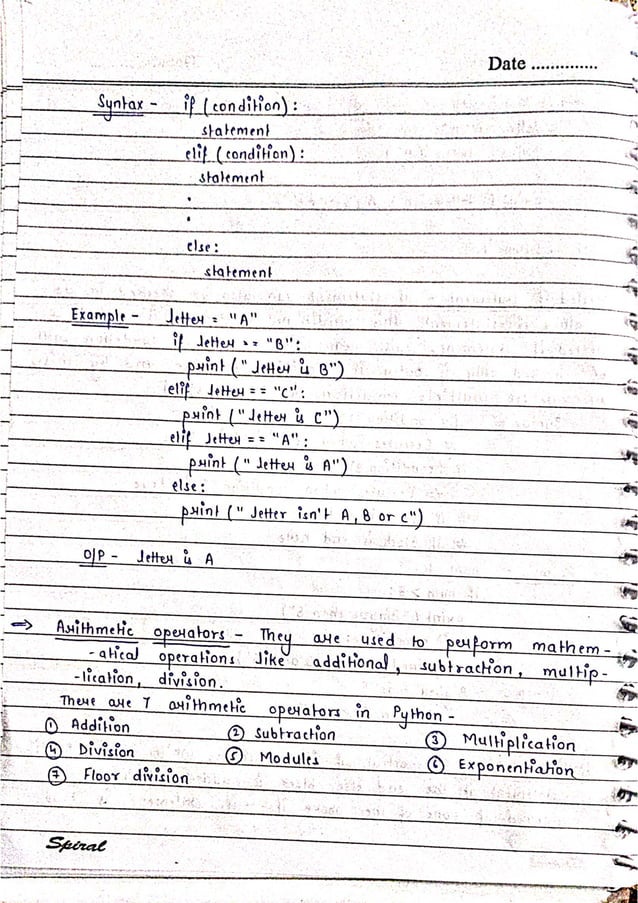 Date ..............
Syntax - if (condition):
statement
elif (condition):
statement
.
.
else:
statement
Example - letter = "A"
if letter == "B":
print ("letter is B")
elif letter == "C":
print ("letter is C")
elif letter == "A":
print ("letter is A")
else:
print (" letter isn't A, B or C")
O/P - letter is A
⇒ Arithmetic operators - They are used to perform mathem-
-atical operations like additional, subtraction, multip-
-lication, division.
There are 7 arithmetic operators in Python -
① Addition ② Subtraction ③ Multiplication
④ Division ⑤ Modules ⑥ Exponentiation
⑦ Floor division
Spiral